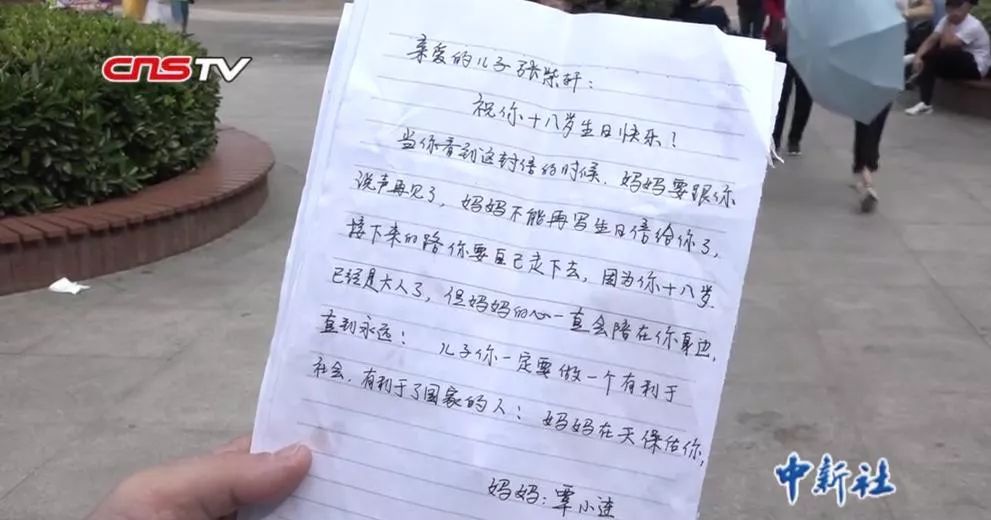 CNSTV
亲爱的儿子张柴轩：
祝你十八岁生日快乐！
当你看到这封信的时候，妈妈要跟你
说声再见了，妈妈不能再写生日信给你了，
接下来的路你要自己走下去，因为你十八岁
已经是大人了，但妈妈的心一直会陪在你身边，
直到永远：儿子你一定要做一个有利于
社会，有利于了国家的人；妈妈在天保估你，
妈妈：覃小连
中新社